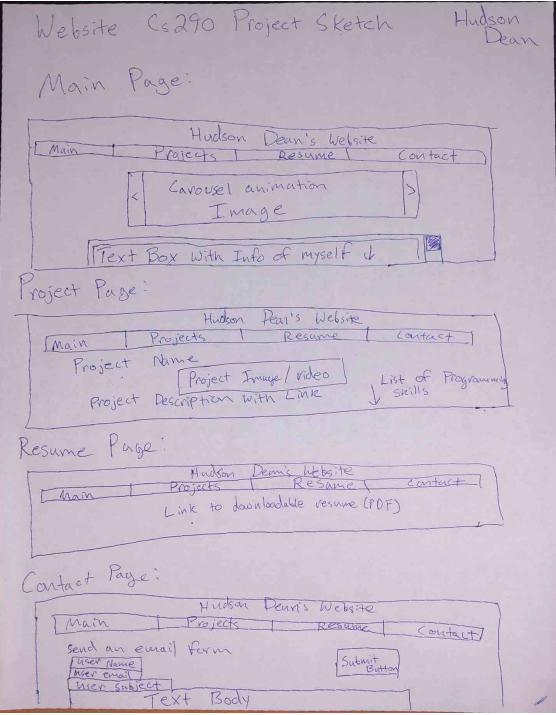 Website Cs290 Project Sketch Hudson Dean
Main Page:
Hudson Dean's Website
Main Projects Resume Contact
< Carousel animation >
Image
Text Box with Info of myself ↓
Project Page:
Hudson Dean's Website
Main Projects Resume Contact
Project Name
Project Image/video
List of Programming skills
Project Description with Link ↓
Resume Page:
Hudson Dean's Website
Main Projects Resume Contact
Link to downloadable resume (PDF)
Contact Page:
Hudson Dean's Website
Main Projects Resume Contact
Send an email form
User Name
User email
User Subject
Submit Button
Text Body